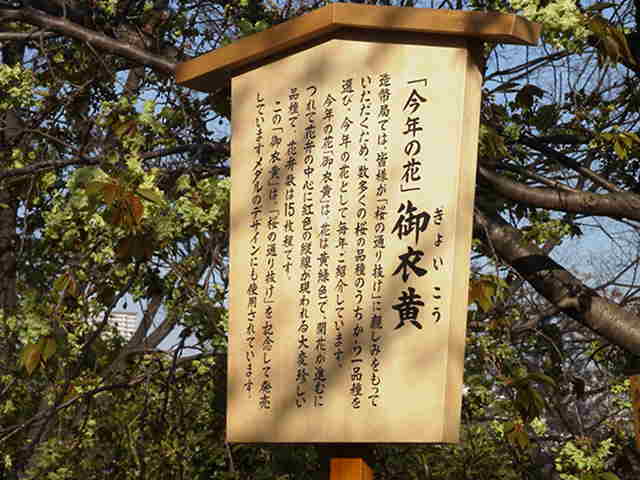 「今年の花」御衣黄
ぎょいこう
造幣局では、皆様が「桜の通り抜け」に親しみをもって
いただくため、数多くの桜の品種のうちから一品種を
選び、今年の花として毎年ご紹介しています。
今年の花「御衣黄」は、花は黄緑色で、開花が進むに
つれて花弁の中心に紅色の縦線が現われる大変珍しい
品種で、花弁数は15枚程です。
この「御衣黄」は、「桜の通り抜け」を記念して発売
していますメダルのデザインにも使用されています。